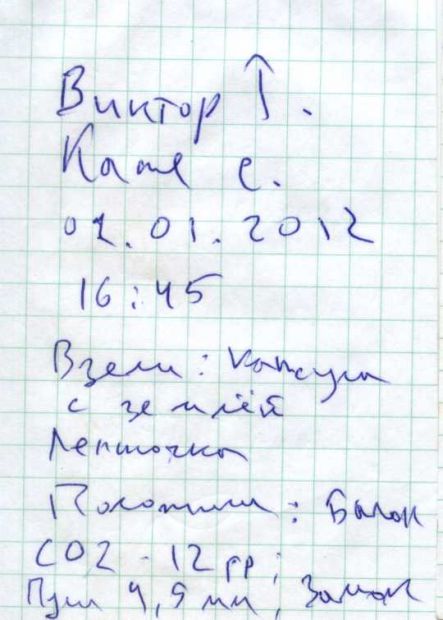 Виктор Т.
Катя С.
02.01.2012
16:45
Взели: капсула
с землёй
Ленточка
Положили: Балон
CO2 - 12 гр;
Пули 4,5 мм, Замок